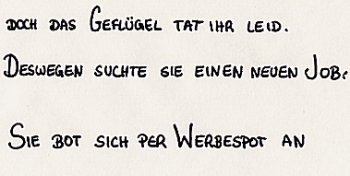 DOCH DAS GEFLÜGEL TAT IHR LEID.
DESWEGEN SUCHTE SIE EINEN NEUEN JOB.
SIE BOT SICH PER WERBESPOT AN